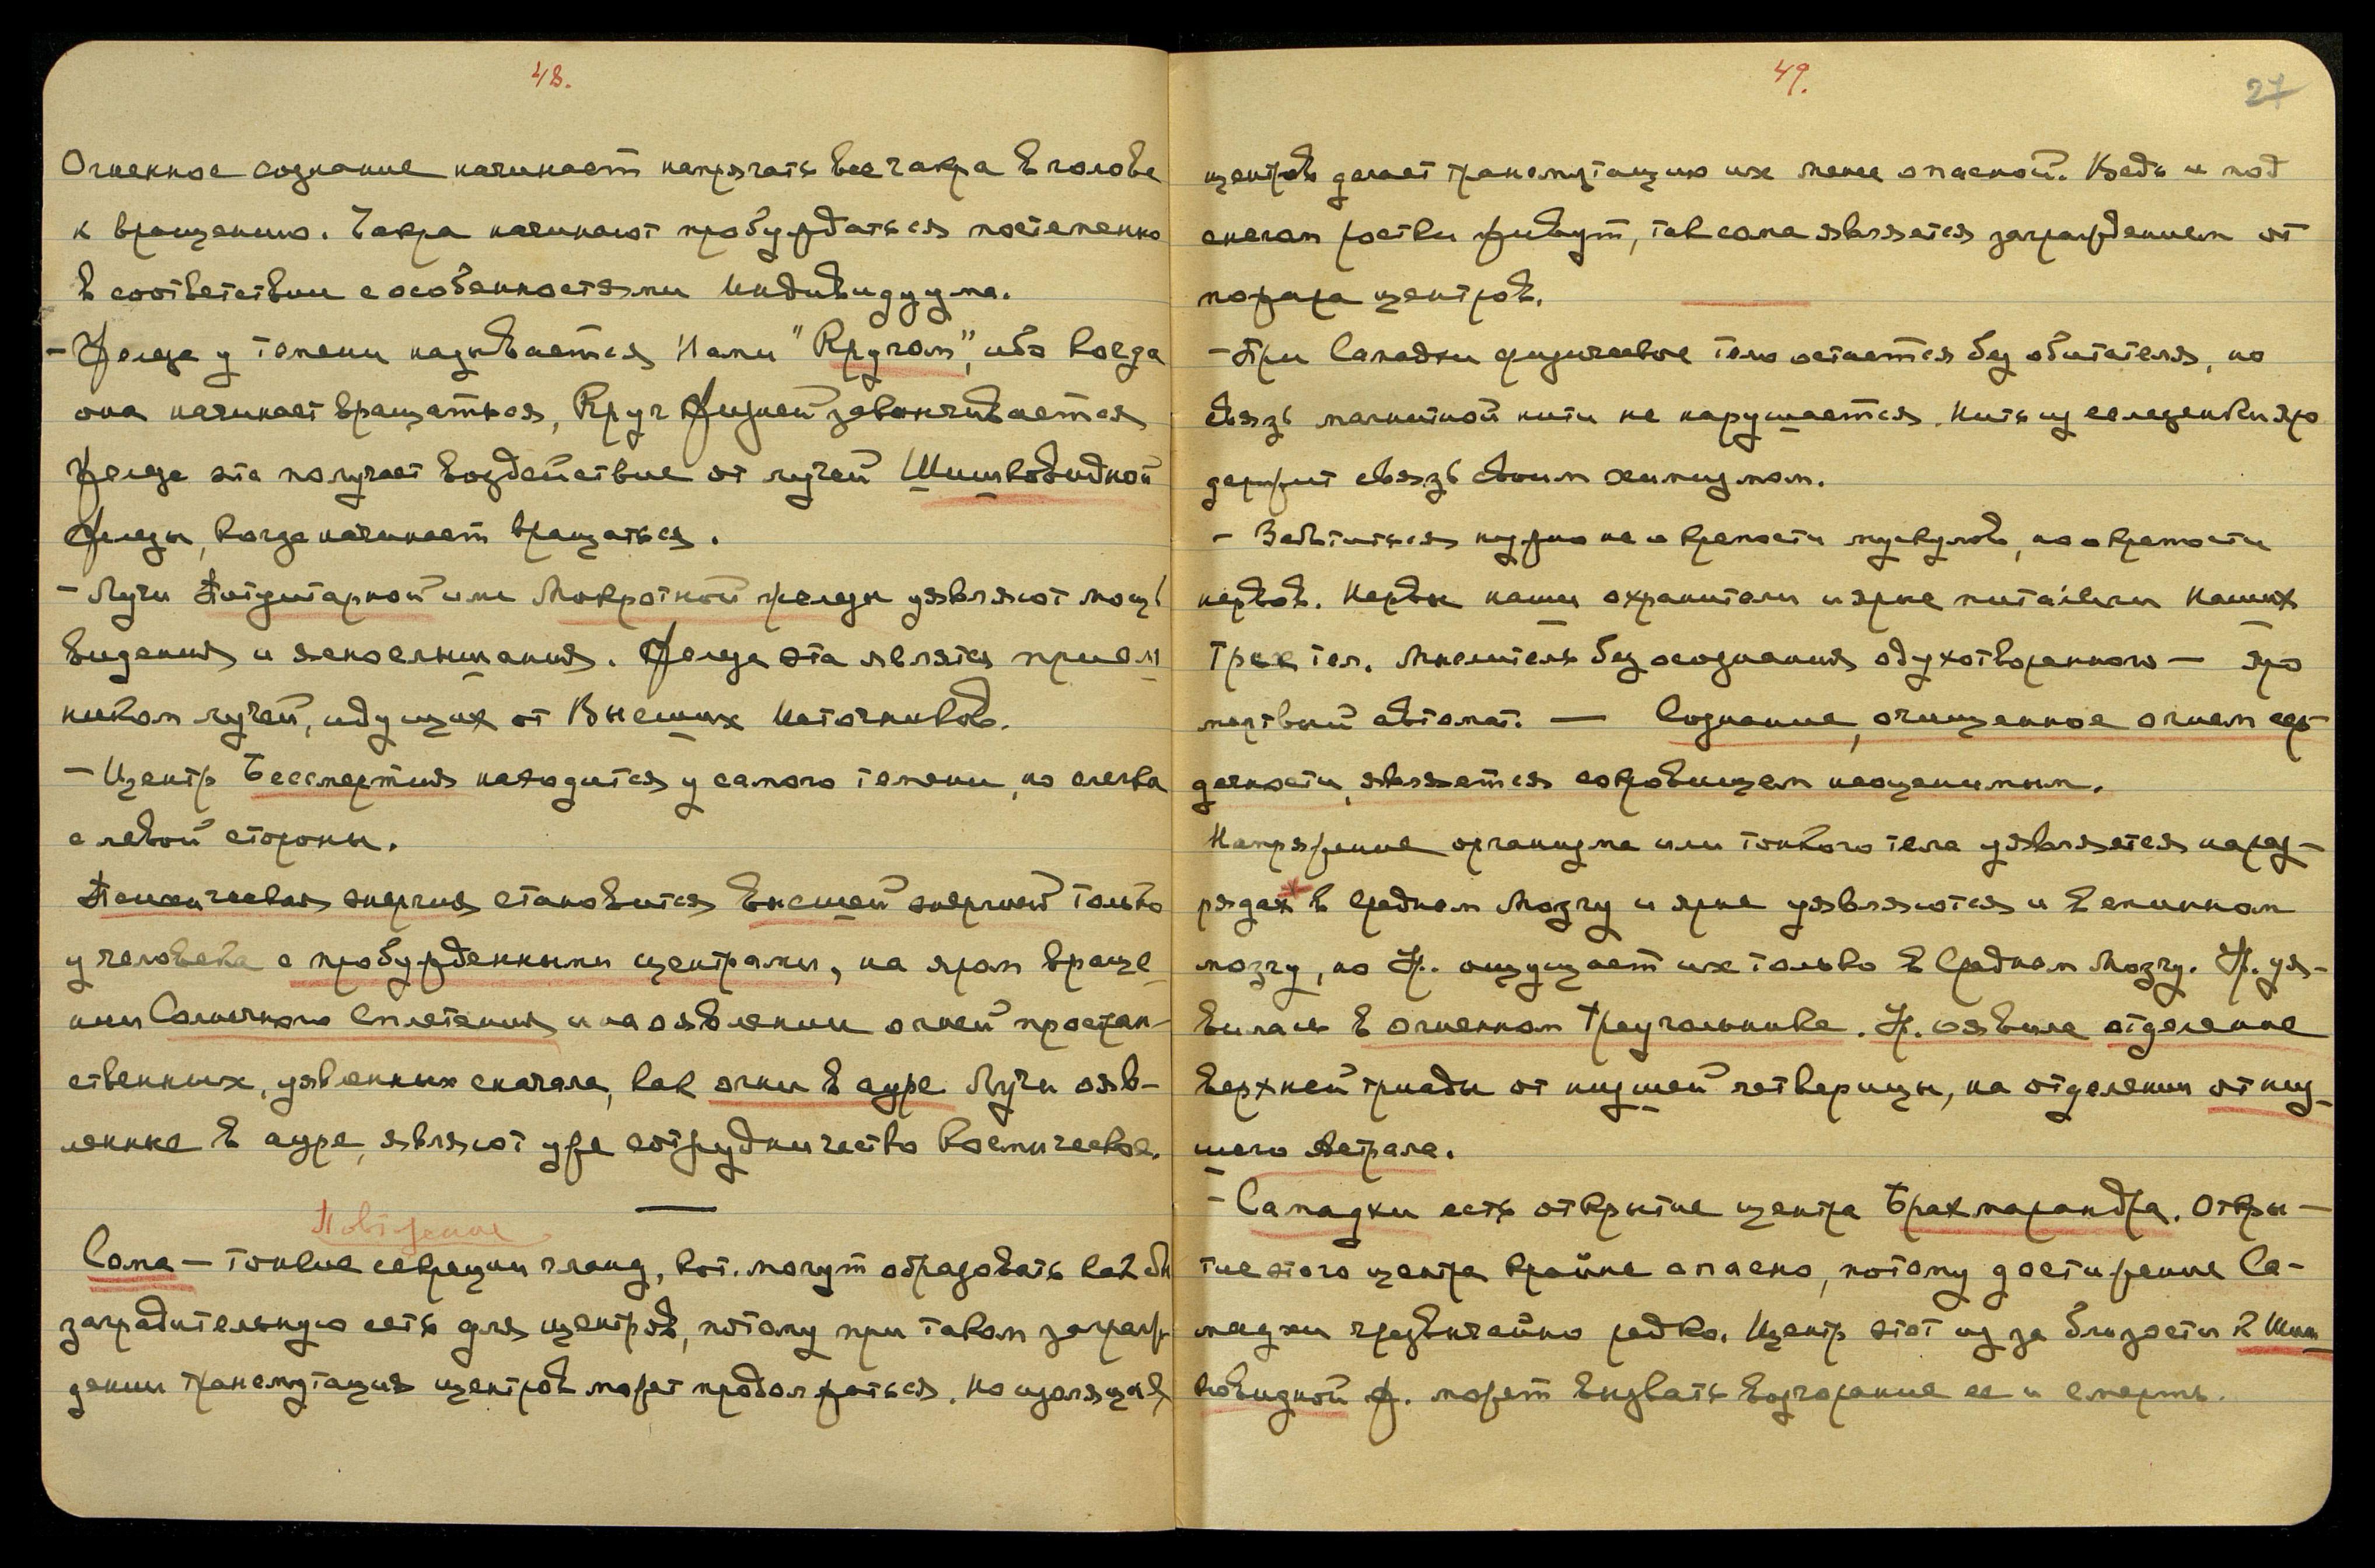 48.
Огненное сознание начинает напрягать все чакра в голове
к вращению. Чакра начинают пробуждаться постепенно
в соответствии с особенностями Индивидуума.
- Железа у темени называется Нами "Кругом", ибо когда
она начинает вращаться, Круг Жизней заканчивается
Железа эта получает воздействие от лучей Шишковидной
железы, когда начинает вращаться.
- Лучи Питуитарной или Мокротной железы уявляют мощь
видения и яснослышания. Железа эта является прием-
ником лучей, идущих от Высших Источников.
- Центр Бессмертия находится у самого темени, но слегка
с левой стороны.
Психическая энергия становится высшей энергией только
у человека с пробужденными центрами, на яром враще-
нии Солнечного Сплетения и на оявлении огней простран-
ственных, уявленных сначала, как огни в ауре Лучи ояв-
ленные в ауре, являют уже сотрудничество Космическое.
Повторение
Сома — тонкие секреции гланд, кот. могут образовать как бы
заградительную сеть для центров, потому при таком заграж-
дении трансмутация центров может продолжаться. Но изоляция
49.
27
центров делает трансмутацию их менее опасной. Ведь и под
снегом ростки живут, так сома является заграждением от
пожара центров.
- При Самадхи физическое тело остается без обитателя, но
связь магнитной нити не нарушается. Нить из селезенки яро
держит связь своим химизмом.
- Заботиться нужно не о крепости мускулов, но о крепости
нервов. Нервы наши охранители и ярые питатели наших
Трех тел. Мыслитель без осознания одухотворенного — яро
мертвый автомат. — Сознание, очищенное огнем сер-
дечности, является сокровищем неоценимым.
Напряжение организма или тонкого тела уявляется на раз-
рядах* в Среднем Мозгу и ярые уявляются и в спинном
мозгу, но У. ощущает их только в Среднем Мозгу. У. уя-
вилась в огненном Треугольнике. У. оявила отделение
верхней триады от низшей четверицы, на отделении от низ-
шего Астрала.
- Самадхи есть открытие центра Брахмарандра. Откры-
тие этого центра крайне опасно, потому достижение Са-
мадхи чрезвычайно редко. Центр этот из за близости к Шиш-
ковидной ж. может вызвать возгорание ее и смерть.